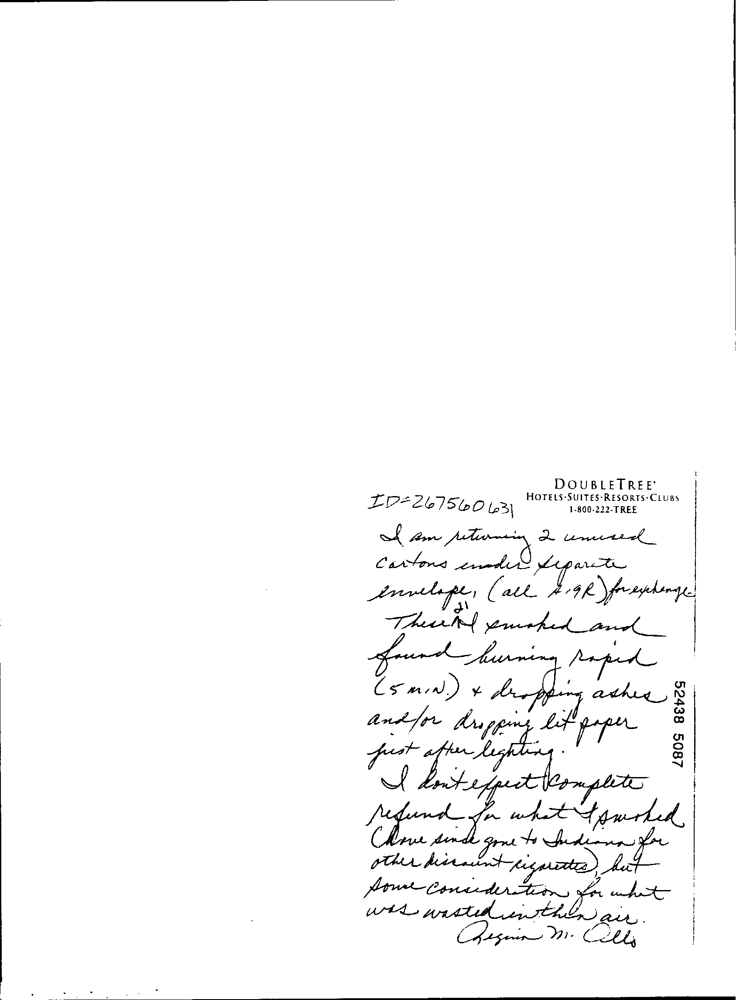 DOUBLETREE
HOTELS·SUITES·RESORTS·CLUBS
1-800-222-TREE
ID=267560631
I am returning 2 unused
cartons under separate
envelope, (all 4.9R) for exchange
These 21 I smoked and
found burning rapid
(5 min.) + dropping ashes
and/or dropping lit paper
just after lighting.
I don't expect complete
refund for what I smoked
(have since gone to Indiana for
other discount cigarettes), but
some consideration for what
was wasted in thin air.
Regina M.
52438 5087